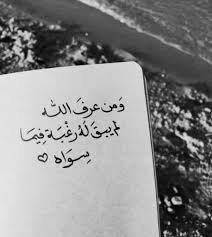 وَمن عرفَ الله
لم يبقَ لهُ رغْبَة فِيمَا
سِوَاه ♡